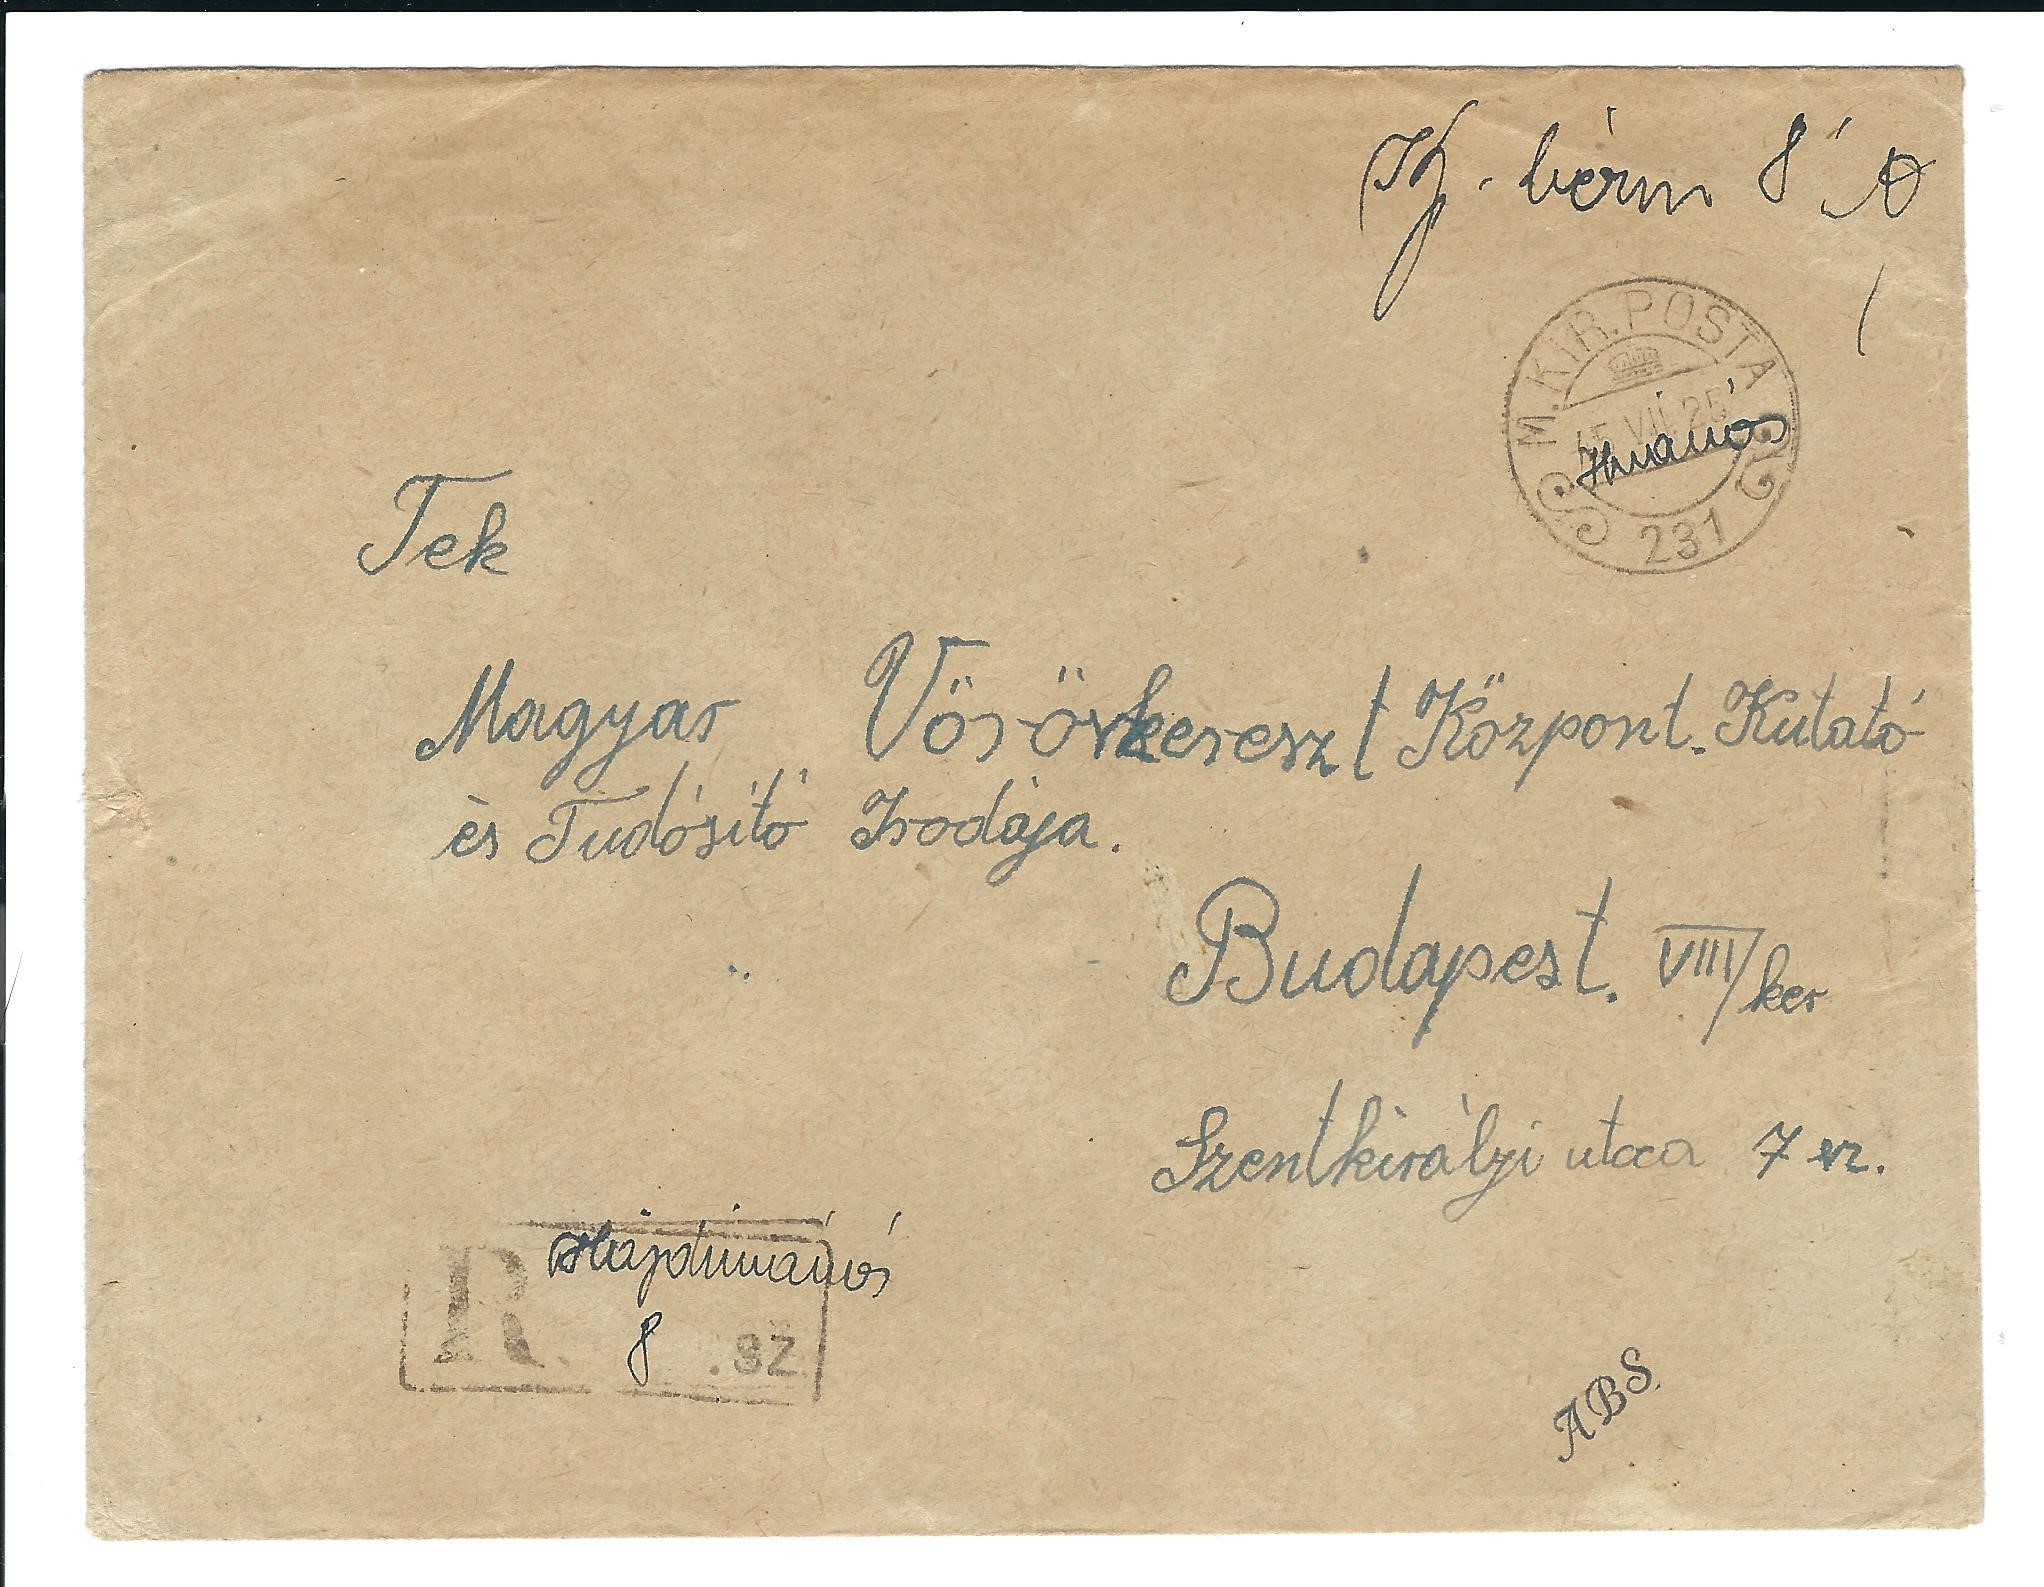 Kp. bérm 8
M. KIR. POSTA
VII. 25
Hnánás
231
Tek
Magyar Vöröskereszt Központ. Kutató
és Tudósító Irodája.
Budapest. VIII/ker
Szentkirályi utca 7 sz.
Hajdunánás
R 8 . SZ
ABS